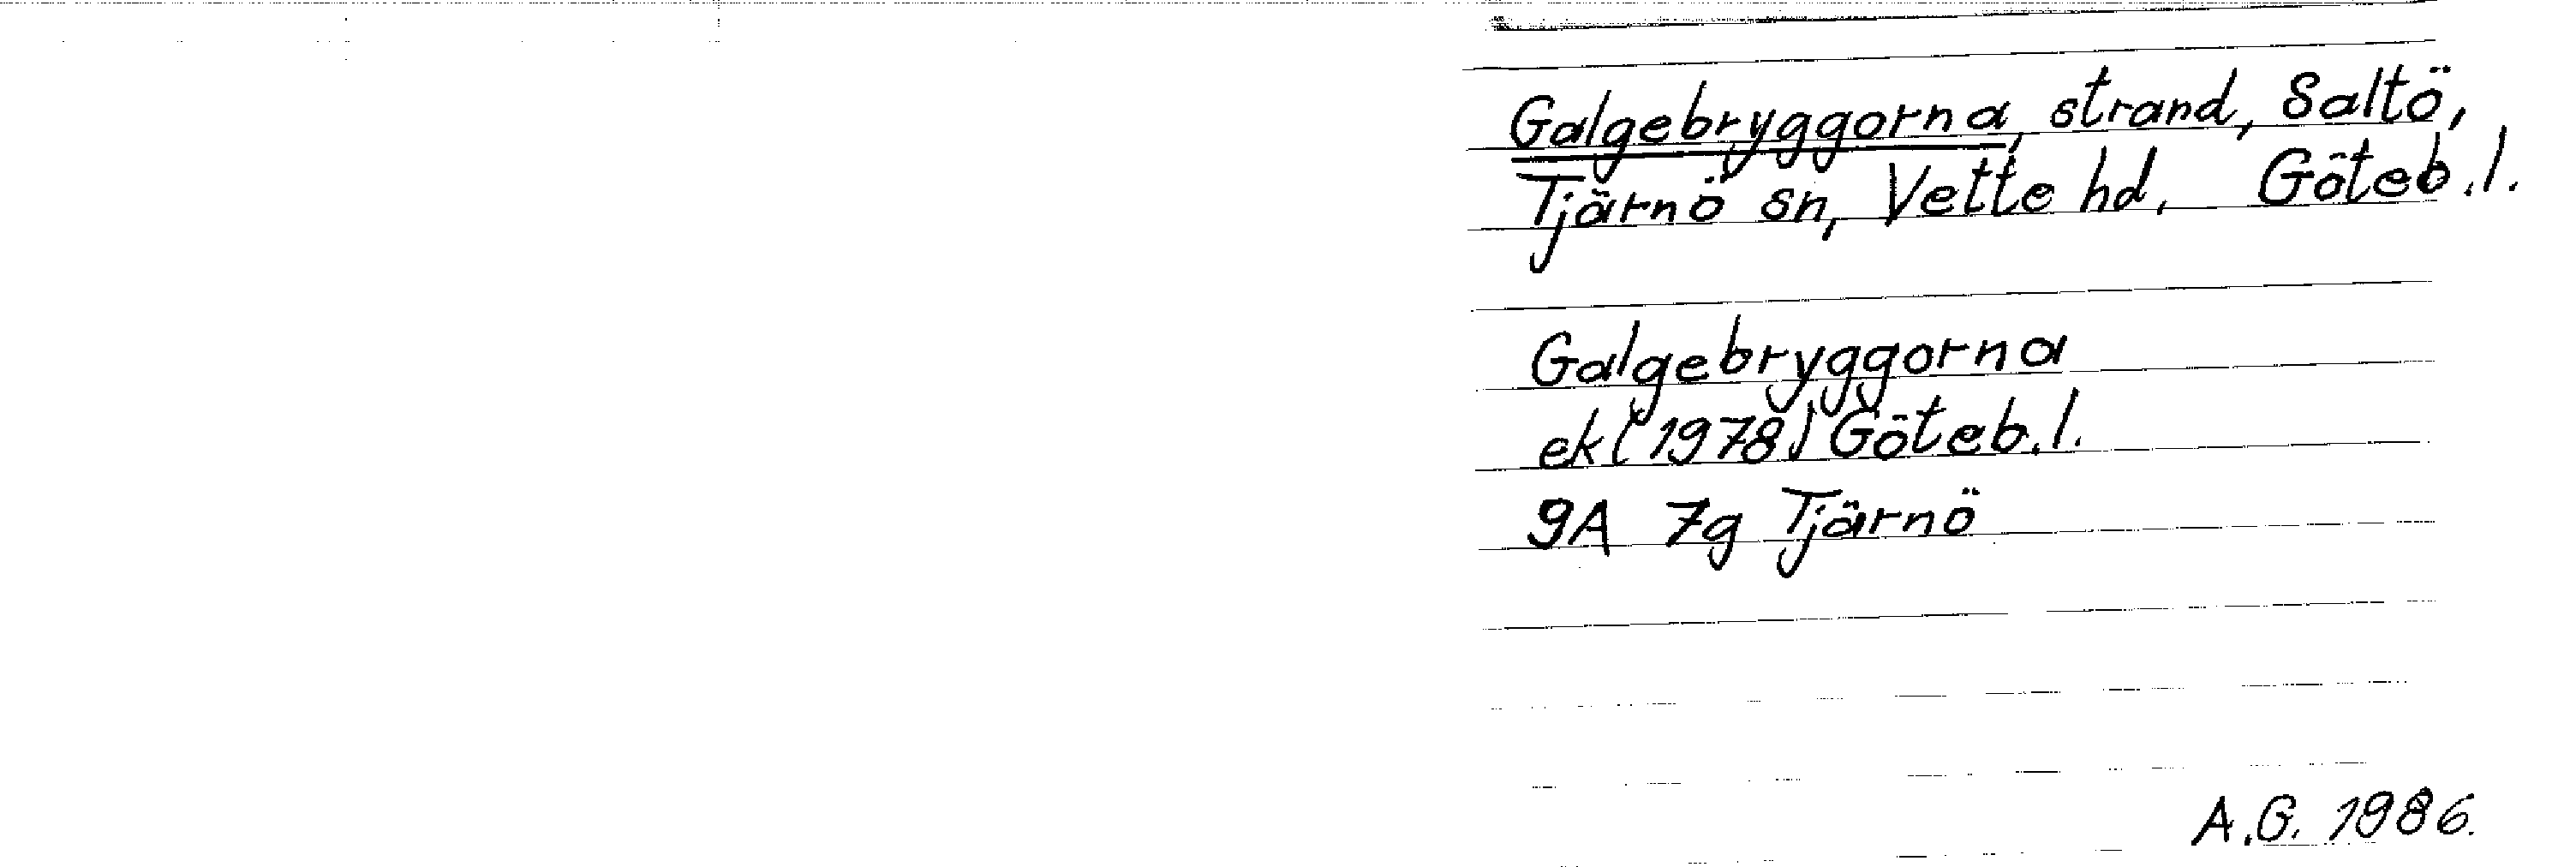 Galgebryggorna, strand, Saltö,
Tjärnö sn, Vette hd, Göteb.l.
Galgebryggorna
ek (1978) Göteb.l.
9A 7g Tjärnö
A.G. 1986.